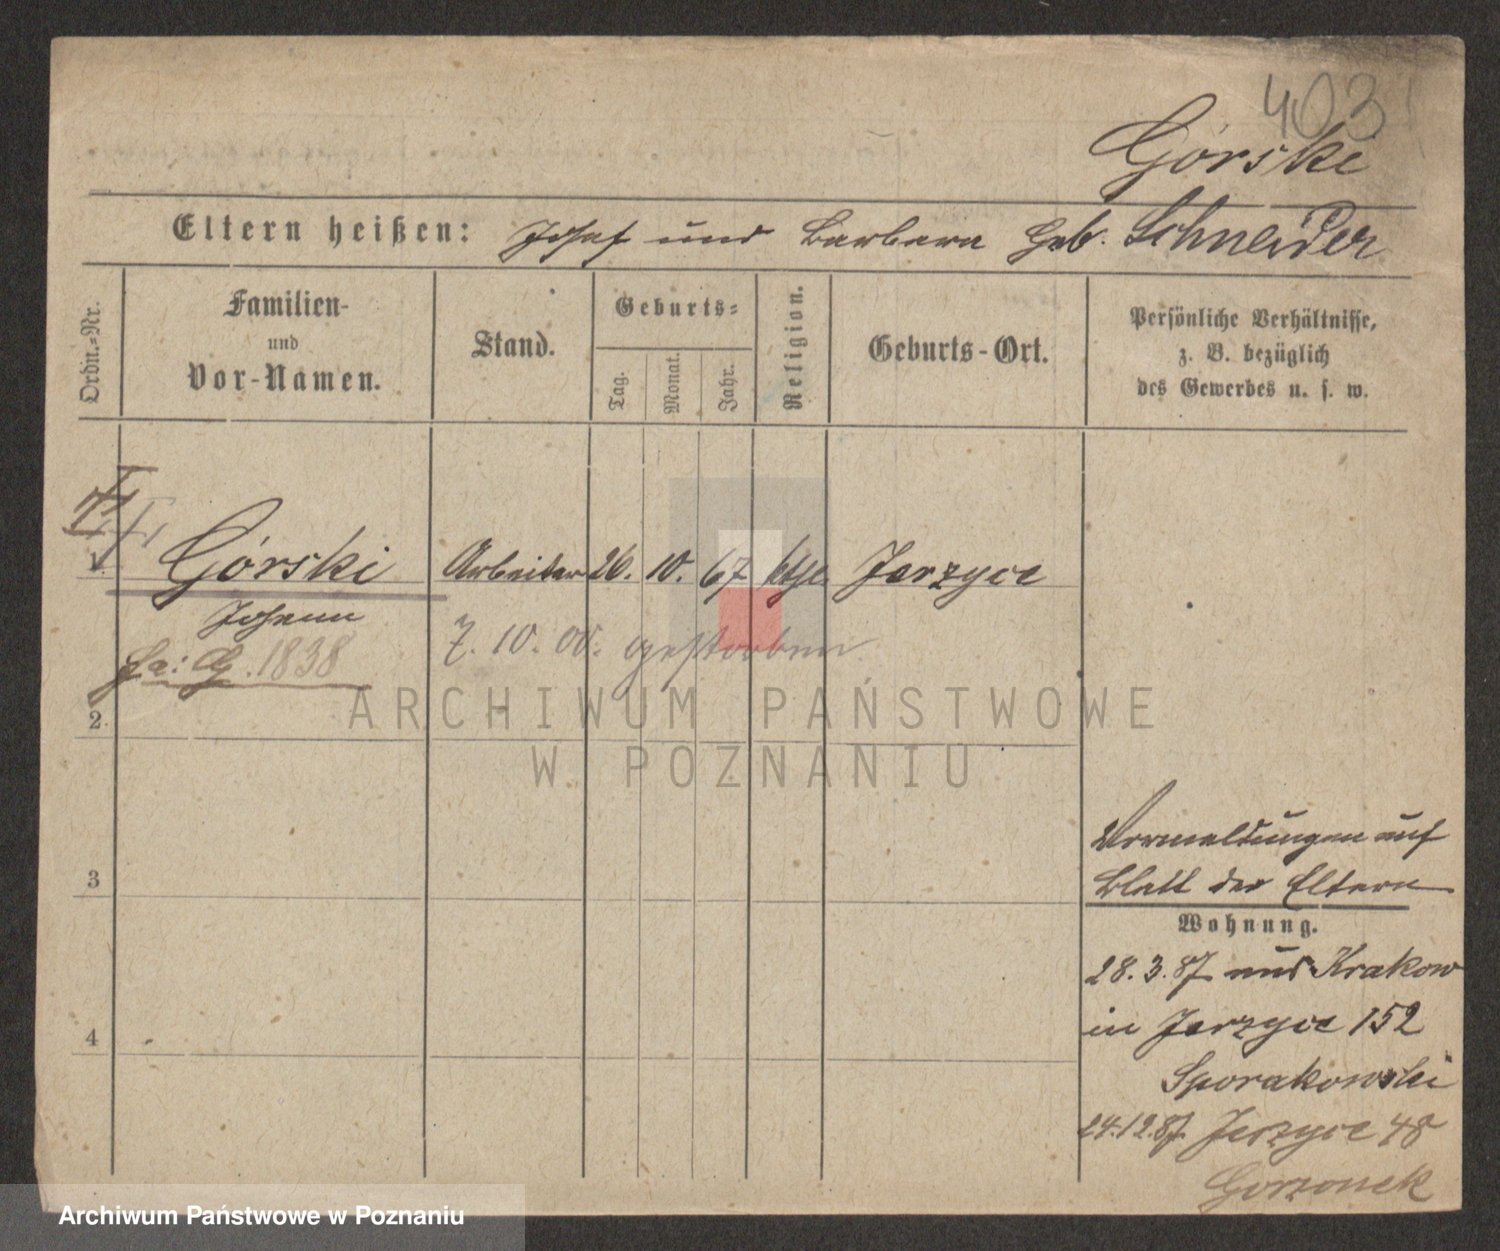 403
Górski
Eltern heißen: Josef und Barbara geb. Schneider
Ordn.=Nr.
Familien-
und
Vor-Namen.
Stand.
Geburts=
Tag.
Monat.
Jahr.
Religion.
Geburts-Ort.
Persönliche Verhältnisse,
z. B. bezüglich
des Gewerbes u. s. w.
1. Górski Arbeiter 26. 10. 67 ktl Jerzyce
Johann
7. 10. 00. gestorben
1838
2.
ARCHIWUM PAŃSTWOWE
W POZNANIU
3
4
Vormeldungen auf
Blatt der Eltern
Wohnung.
28.3.87 aus Krakow
in Jerzyce 152
Sporakowski
24.12.87 Jerzyce 48
Gorzonek
Archiwum Państwowe w Poznaniu